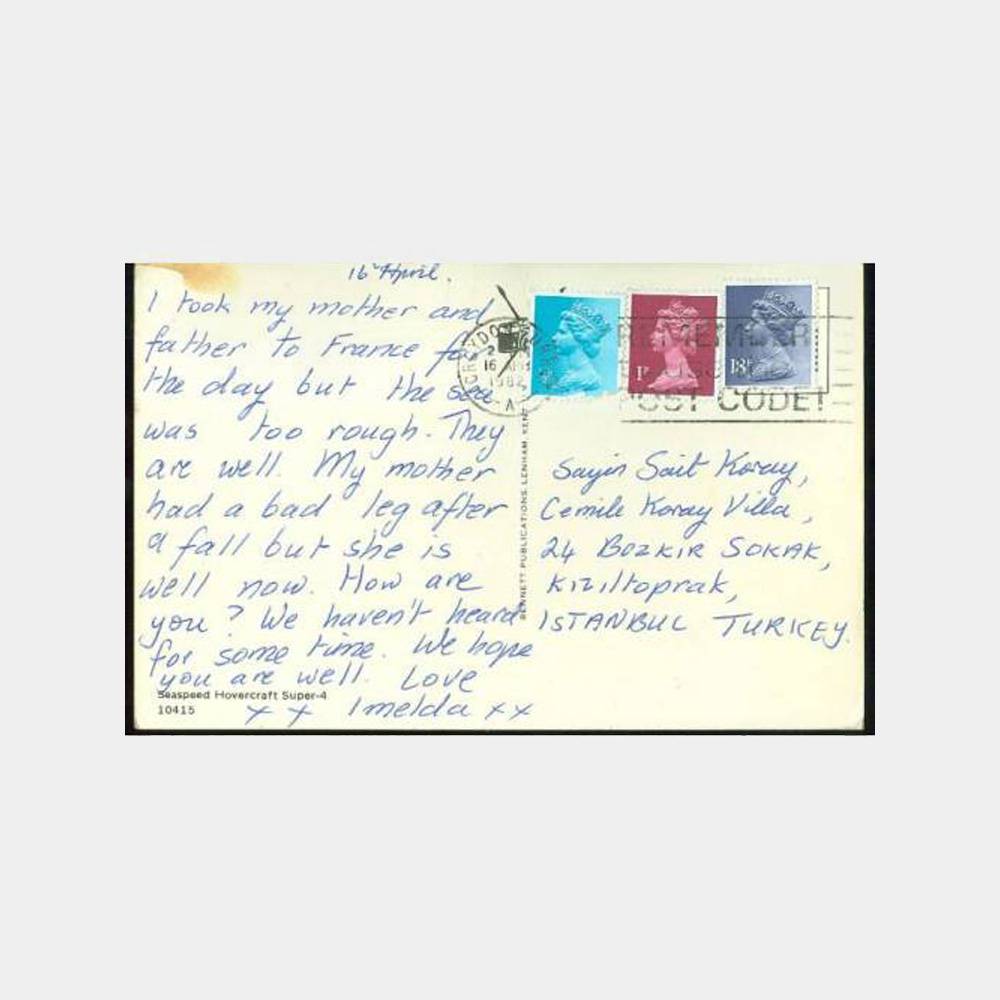 16 April.
I took my mother and
father to France for
the day but the sea
was too rough. They
are well. My mother
had a bad leg after
a fall but she is
well now. How are
you? We haven't heard
for some time. We hope
you are well. Love
x x Imelda x x
Seaspeed Hovercraft Super-4
10415
BENNETT PUBLICATIONS, LENHAM, KENT
CROYDON
16
1982
A
1P
REMEMBER
POST CODE!
Sayin Sait Koray,
Cemile Koray Villa,
24 BOZKIR SOKAK,
Kiziltoprak,
ISTANBUL TURKEY.